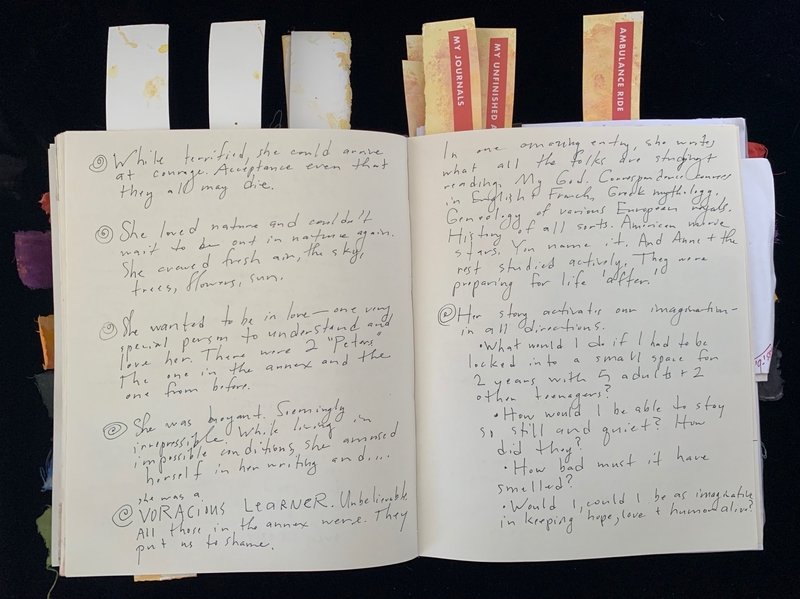 MY JOURNALS
MY UNFINISHED A
AMBULANCE RIDE
While terrified, she could arrive
at courage. Acceptance even that
they all may die.
She loved nature and couldn't
wait to be out in nature again.
She craved fresh air, the sky,
trees, flowers, sun.
She wanted to be in love—one very
special person to understand and
love her. There were 2 "Peters"
The one in the annex and the
one from before.
She was buoyant. Seemingly
irrepressible. While living in
impossible conditions, she amused
herself in her writing and....
she was a
VORACIOUS LEARNER. Unbelievable.
All those in the annex were. They
put us to shame.
In one amazing entry, she writes
what all the folks are studying +
reading. My God. Correspondence courses
in English + French, Greek mythology.
Geneology of various European royals.
History of all sorts. American movie
stars. You name it. And Anne + the
rest studied actively. They were
preparing for life 'after.'
Her story activates our imagination—
in all directions.
• What would I do if I had to be
locked into a small space for
2 years with 5 adults + 2
other teenagers?
• How would I be able to stay
so still and quiet? How
did they?
• How bad must it have
smelled?
• Would I, could I be as imaginative
in keeping hope, love + humor alive?